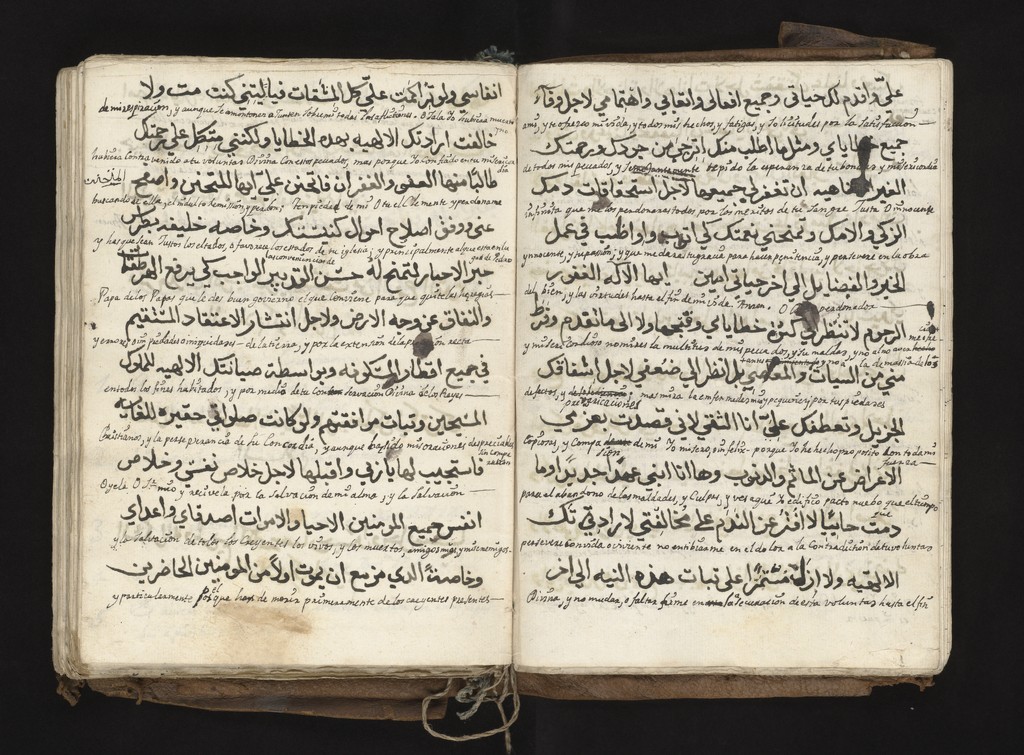 علي واقدم لك حياتي وجميع افعالي واتعابي واهتمامي لاجل وفاء
amis, y te ofrezco mi vida, y todos mis hechos, y fatigas, y Solicitudes por la Satisfaccion
جميع خطاياي ومثلها اطلب منك اترجي من جودك ورحمتك
de todos mis pecados, y te pido la esperanza de tu bondad y misericordia
الغير متناهيه ان تغفر لي جميعها لاجل استحقاقات دمك
infinita que me los perdonaras todos por los meritos de tu Sangre Justa O innocente
الزكي والامك وتمنحني نعمتك كي اتوب واواظب في عمل
ynnocente, y tu pasión; y que me daras tu gracia para hacer penitencia, y persevere en la obra
الخير والفضايل الى اخر حياتي امين ايها الاله الغفور
del bien, y las virtudes hasta el fin de mi vida. Amen. O perdonador
الرحوم لا تنظر لي كثرة خطاياي وقبحها ولا الى ما تقدم وفرط
y misericordioso no mires la multitud de mis pecados, y su maldad, y no
مني من السيات والمعاصي بل انظر الى ضعفي لاجل اشفاقك
defectos, y mas mira la enfermedad mia por tus piedades
prevaricaciones
الجزيل وتعطفك علي انا الشقي لاني قصدت بعزمي
Copiosas, y Compasion de mi Yo misero, o infelix porque Yo he hecho proposito con toda mi fuerza
الاعراض عن الماثم والذنوب وها انا ابني عهدا جديدا وما
para al abandono de las maldades, y Culpas, y ves aqui Yo edifico pacto nuebo que el tiempo que
دمت حاييا لا افتر عن الندم على مخالفتي لارادتك
persevere con vida o viviente no entibiarme en el dolor a la Contradiction de tu voluntad
الالهيه ولا ازل مستمرا على ثبات هذه النيه الى اخر
Divina, y no mudar, o faltar firme en la de esta voluntad hasta el fin
انفاسي ولو تراكمت علي كل الشقات فيا ليتني كنت مت ولا
de mi respiracion, y aunque Se amontonen o Junten Sobre mi todas las aflictiones. O Jala Yo hubiera muerto y no
خالفت ارادتك الالهيه بهذه الخطايا ولكنني متكل على رحمتك
hubiera Contravenido a tu voluntad Divina Con estos pecados, mas porque Yo confiado en tu misericordia
طالبا منها العفو والغفران فاتحنن علي ايها المتحنن واصفح
buscando de ella, el indulto remission, y perdon; Ten piedad de mi O tu el Clemente y perdoname
عني ووفق اصلاح احوال كنيستك وخاصه خليفه بطرس
y haz que sean Justos los estados, o favorece los estados de tu iglesia; y principalmente al que esta en lugar de Pedro
las conveniencias de
حبر الاحبار لتمنحه حسن التدبير الواجب كي يرفع الهرطقات
Papa de los Papas que le des buen govierno el que conviene para que quite las heregias
والنفاق عن وجه الارض ولاجل انتشار الاعتقاد المستقيم
y errores, o impiedades o iniquidades de la tierra, y por la extension de la recta
في جميع اقطار المسكونه وبواسطة صيانتك الالهيه للملوك
en todos los fines habitados, y por medio de tu Conservacion Divina de los Reyes
المسيحيين وثبات مرافقتهم ولو كانت صلواتي حقيره للغايه
Christianos, y la perseverancia de su Concordia, y aunque hayan sido mis oraciones despreciables sin comparacion
فاستجيب لها يا ربي واقبلها لاجل خلاص نفسي وخلاص
Oyela O Sr. mio y recivela por la Salvacion de mi alma, y la Salvacion
انفس جميع المومنين الاحيا والاموات اصدقاي واعداي
y la Salvacion de todos los Creyentes los vivos, y los muertos, amigos mios y mis enemigos
وخاصة الذي مزمع ان يموت اولا من المومنين الحاضرين
y particularmente por el que ha de morir primeramente de los creyentes presentes